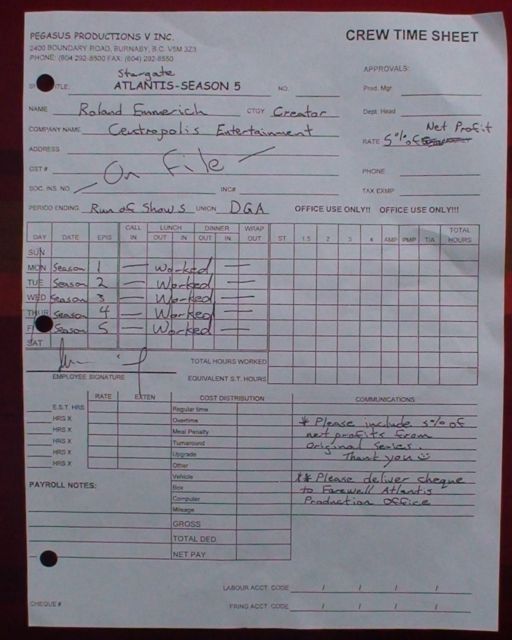 PEGASUS PRODUCTIONS V INC.
CREW TIME SHEET
2400 BOUNDARY ROAD, BURNABY, B.C. V5M 3Z3
PHONE: (604) 292-8500 FAX: (604) 292-8550
Stargate
APPROVALS:
TITLE: ATLANTIS-SEASON 5 NO. Prod. Mgr
NAME Roland Emmerich CTGY Creator Dept. Head
COMPANY NAME Centropolis Entertainment RATE 5% of Net Profit
ADDRESS
On File
GST # PHONE
SOC. INS. NO. INC# TAX EXMP
PERIOD ENDING Run of Shows UNION DGA OFFICE USE ONLY!! OFFICE USE ONLY!!
DAY DATE EPIS CALL IN LUNCH OUT IN DINNER OUT IN WRAP OUT ST 1.5 2 3 4 AMP PMP T/A TOTAL HOURS
SUN
MON Season 1 — Worked —
TUE Season 2 — Worked —
WED Season 3 — Worked —
THUR Season 4 — Worked —
Season 5 — Worked —
SAT
TOTAL HOURS WORKED
EMPLOYEE SIGNATURE EQUIVALENT S.T. HOURS
RATE EXTEN COST DISTRIBUTION COMMUNICATIONS
E.S.T. HRS Regular time
HRS X Overtime
HRS X Meal Penalty
HRS X Turnaround
HRS X Upgrade
HRS X Other
Vehicle
PAYROLL NOTES: Box
Computer
Mileage
GROSS
TOTAL DED.
NET PAY
* Please include 5% of
net profits from
Original Series.
Thank you ☺
** Please deliver cheque
to Farewell Atlantis
Production Office
LABOUR ACCT. CODE / / / /
CHEQUE # FRING ACCT. CODE / / / /